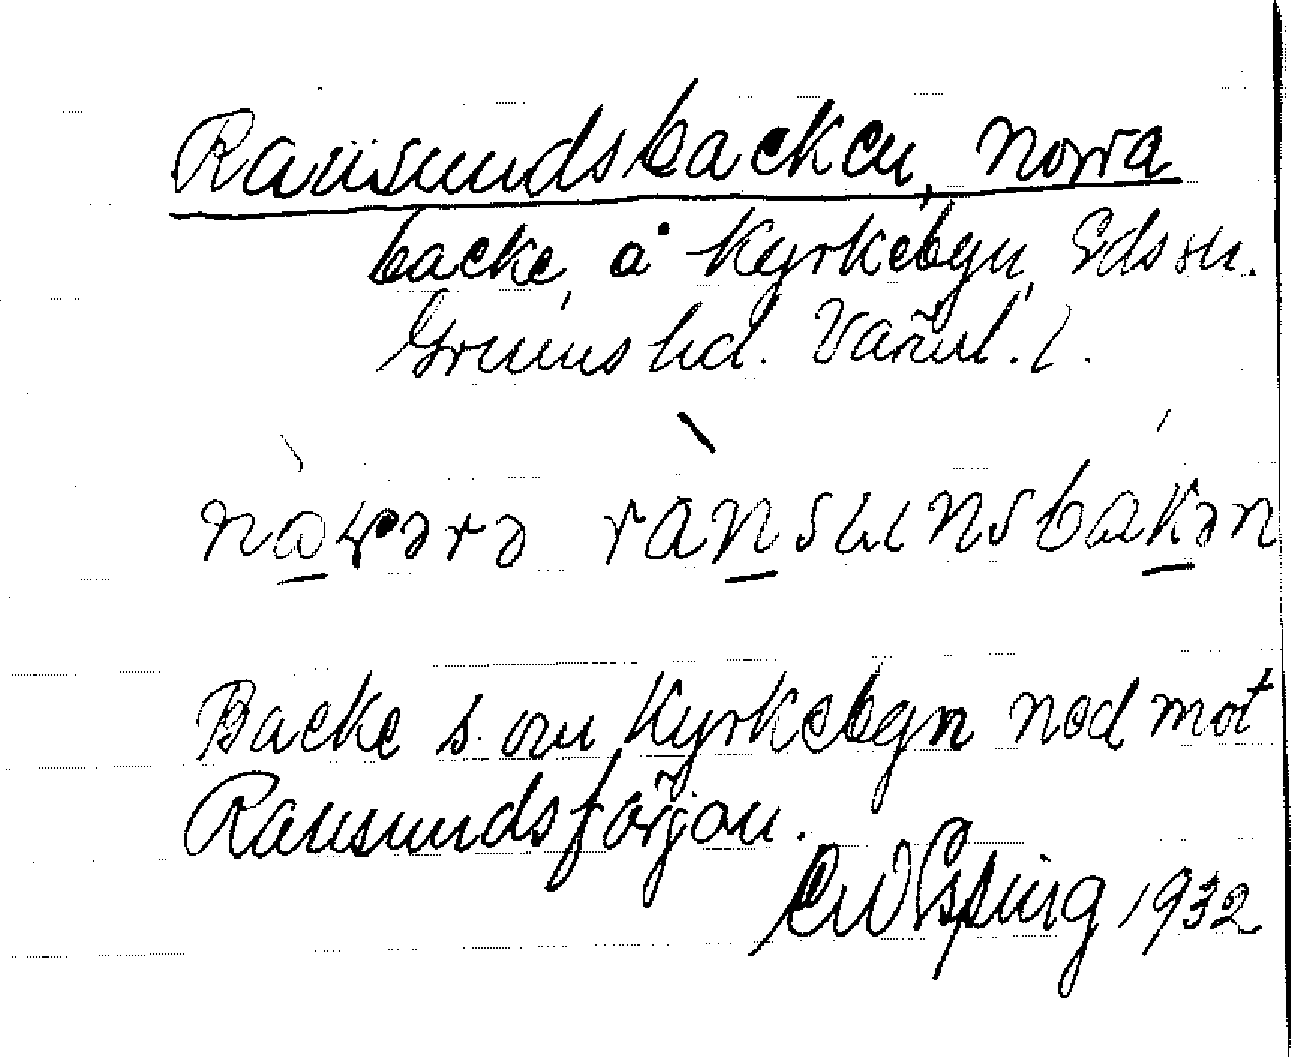 Ransundsbacken, norra
backe, å Kyrkebyn, Eds sn.
Grums hd. Värml. l.
rànsunsbakən
Backe s. om Kyrkebyn ned mot
Ransundsfärjan.
CW Esping 1932